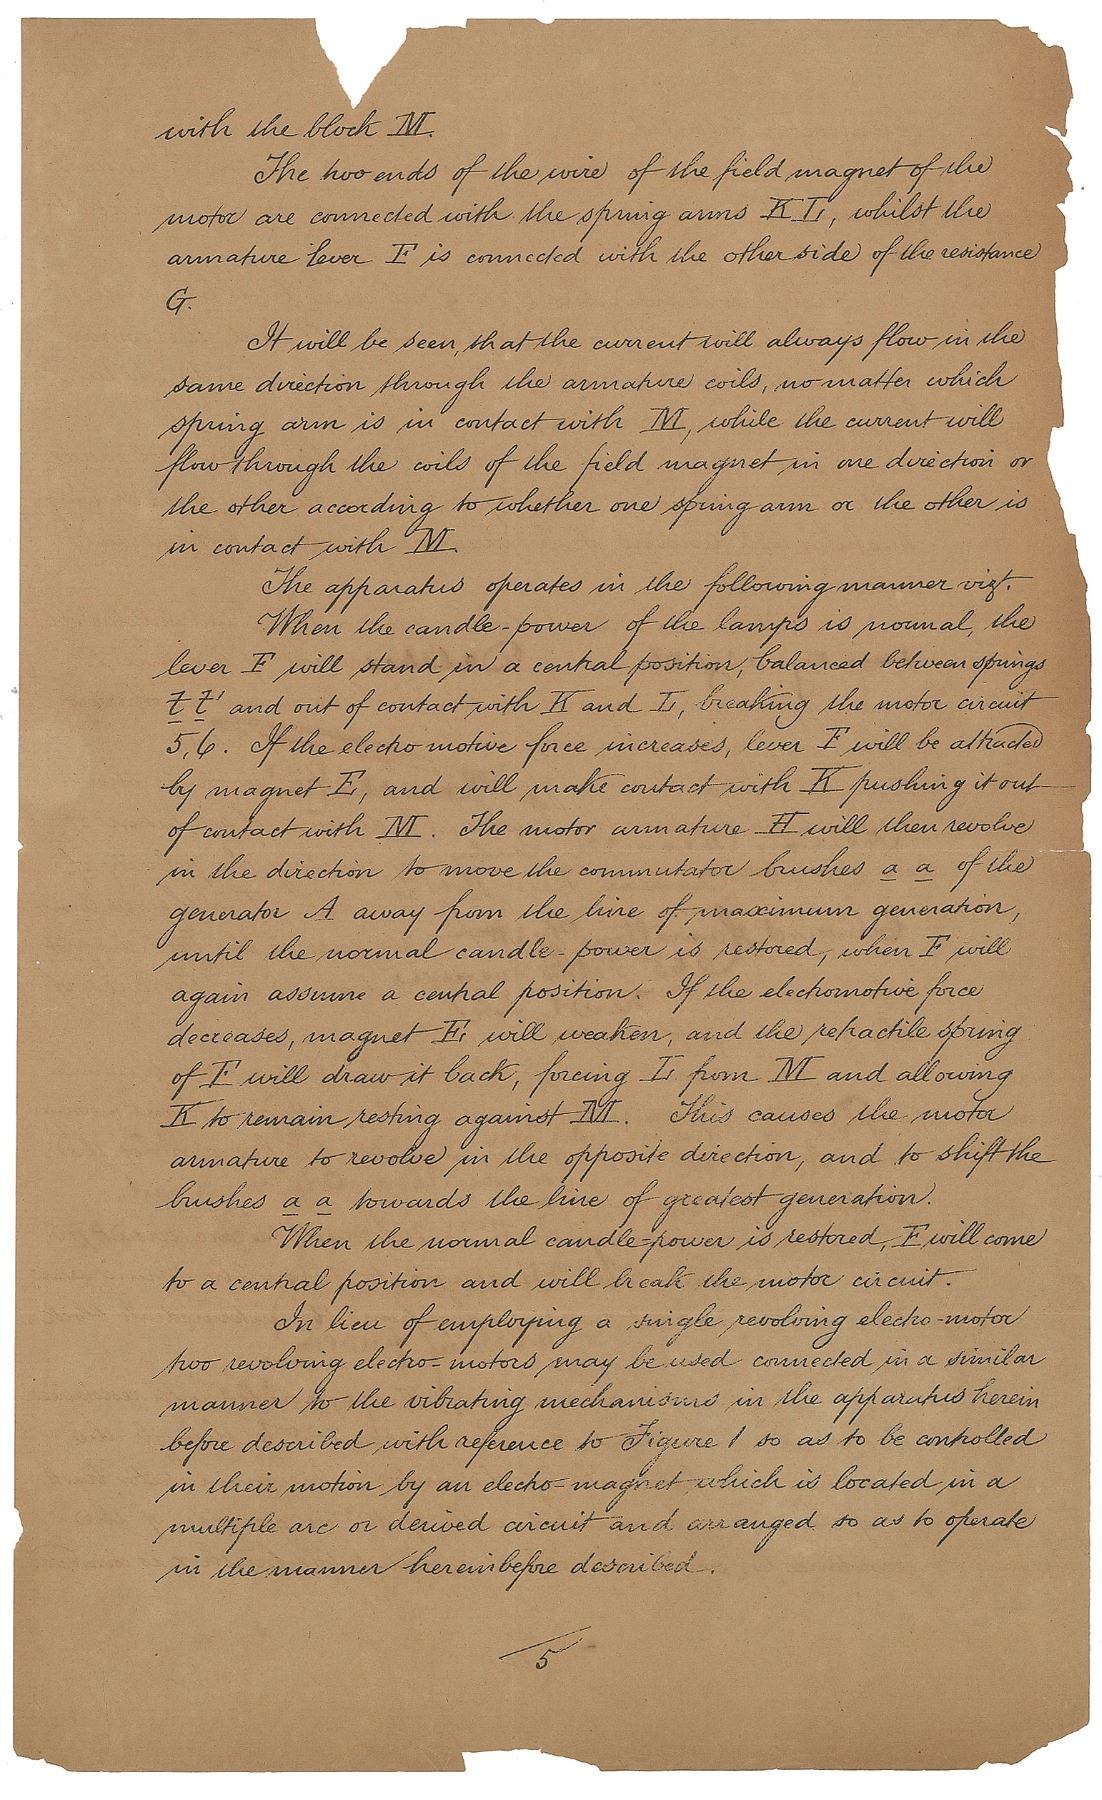 with the block M.
The two ends of the wire of the field magnet of the
motor are connected with the spring arms K L, whilst the
armature lever F is connected with the other side of the resistance
G.
It will be seen, that the current will always flow in the
same direction through the armature coils, no matter which
spring arm is in contact with M, while the current will
flow through the coils of the field magnet in one direction or
the other according to whether one spring arm or the other is
in contact with M.
The apparatus operates in the following manner vizt.
When the candle-power of the lamps is normal, the
lever F will stand in a central position, balanced between springs
t t' and out of contact with K and L, breaking the motor circuit
5, 6. If the electro motive force increases, lever F will be attracted
by magnet E, and will make contact with K pushing it out
of contact with M. The motor armature H will then revolve
in the direction to move the commutator brushes a a of the
generator A away from the line of maximum generation,
until the normal candle-power is restored, when F will
again assume a central position. If the electromotive force
decreases, magnet E, will weaken, and the retractile spring
of F will draw it back, forcing L from M and allowing
K to remain resting against M. This causes the motor
armature to revolve in the opposite direction, and to shift the
brushes a a towards the line of greatest generation.
When the normal candle=power is restored, F will come
to a central position and will break the motor circuit.
In lieu of employing a single revolving electro-motor
two revolving electro=motors may be used connected in a similar
manner to the vibrating mechanisms in the apparatus herein
before described with reference to Figure 1 so as to be controlled
in their motion by an electro=magnet which is located in a
multiple arc or derived circuit and arranged so as to operate
in the manner hereinbefore described.
5